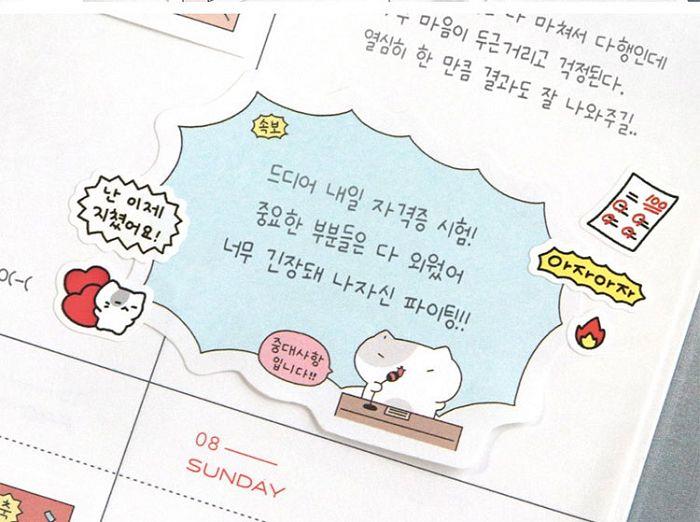 다 마쳐서 다행인데
마음이 두근거리고 걱정된다.
열심히 한 만큼 결과도 잘 나와주길..
속보
드디어 내일 자격증 시험!
중요한 부분들은 다 외웠어
너무 긴장돼 나자신 파이팅!!
난 이제
지쳤어요!
100
아자아자
중대사항
입니다!!
08
SUNDAY
축